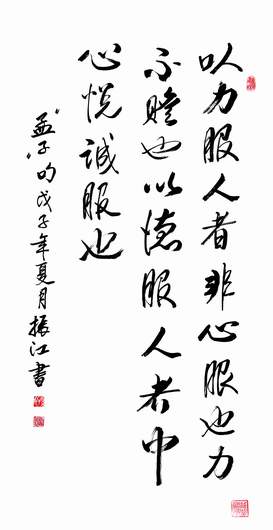 以力服人者非心服也力
不赡也以德服人者中
心悦诚服也
“孟子”句戊子年夏月振江书